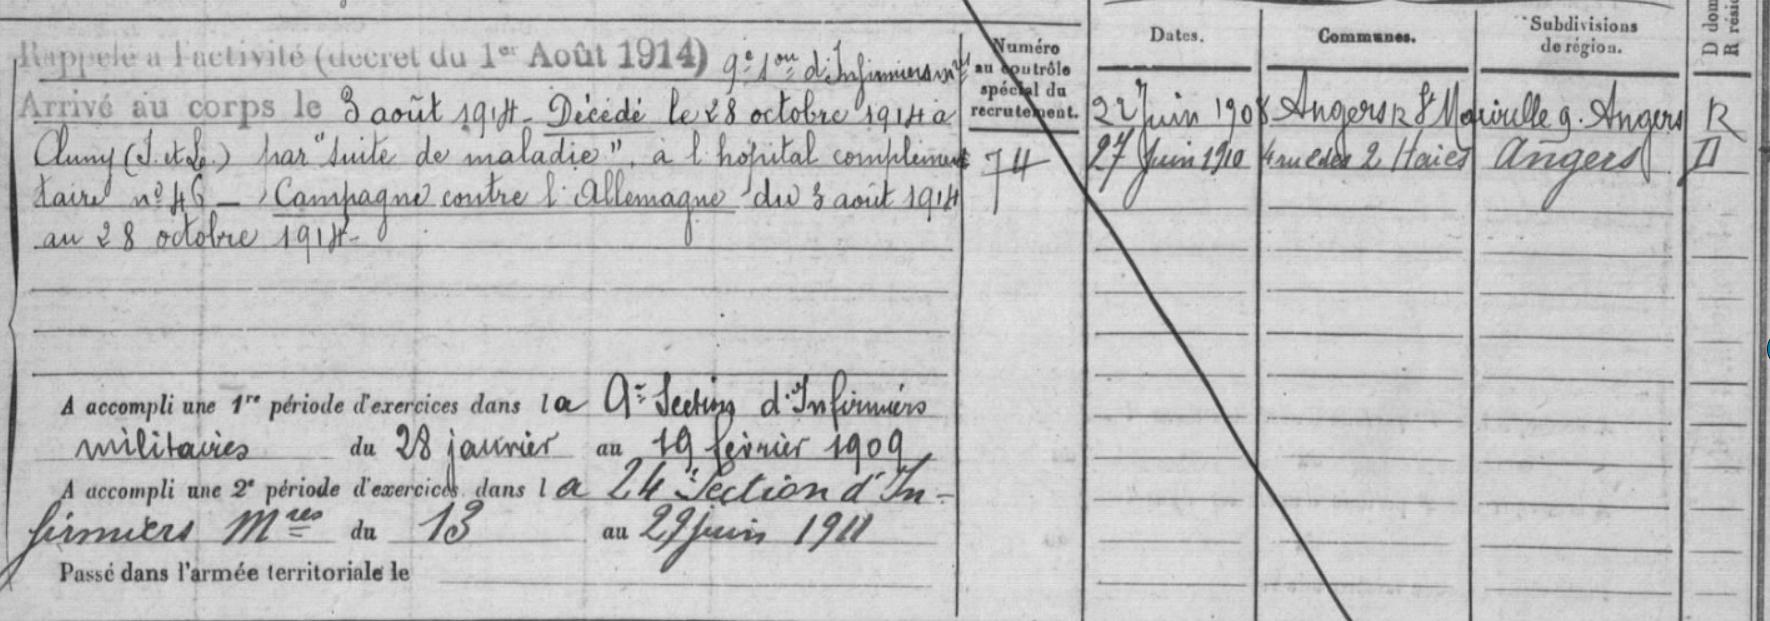 Rappelé à l'activité (décret du 1er Août 1914) 9e son d'Infirmiers mres
Arrivé au corps le 3 août 1914. Décédé le 28 octobre 1914 à
Cluny (S. et L.) par "suite de maladie", à l'hôpital complémen
taire n° 46 _ Campagne contre l'Allemagne du 3 août 1914
au 28 octobre 1914.
A accompli une 1re période d'exercices dans la 9e Section d'Infirmiers
militaires du 28 janvier au 19 février 1909
A accompli une 2e période d'exercices dans la 24e Section d'In-
firmiers Mres du 13 au 29 juin 1911
Passé dans l'armée territoriale le
Numéro
au contrôle
spécial du
recrutement.
74
Dates. Communes. Subdivisions
de région.
D dom
R rési
22 Juin 1908 Angers r. St g. Angers R
27 Juin 1910 4 rue des 2 Haies Angers D